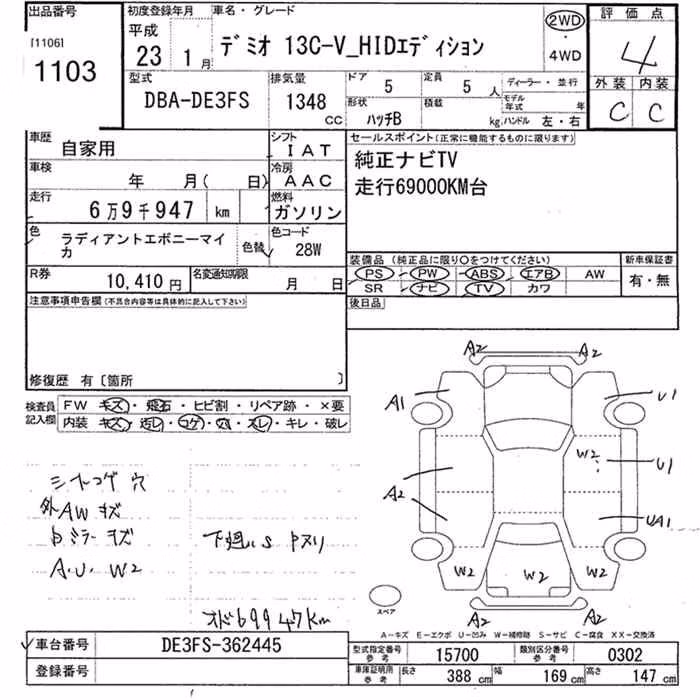 出品番号
[1106]
1103
初度登録年月
平成
23 1月
車名・グレード
デミオ 13C-V_HIDエディション
2WD
・
4WD
評価点
4
外装 内装
C C
型式
DBA-DE3FS
排気量
1348
CC
ドア
5
定員
5 人
形状
ハッチB
積載
kg
ディーラー・並行
モデル年式 年
ハンドル 左・右
車歴
自家用
シフト
IAT
車検
年 月( 日)
冷房
AAC
走行
6万9千947 km
燃料
ガソリン
色
ラディアントエボニーマイカ
色替
色コード
28W
R券
10,410 円
名変通知期限
月 日
セールスポイント(正常に機能するものに限ります)
純正ナビTV
走行69000KM台
装備品(純正品に限り○をつけてください)
PS PW ABS エアB AW
SR ナビ TV カワ
新車保証書
有・無
後日品
注意事項申告欄(不具合内容等は具体的に記入して下さい)
修復歴 有〔箇所 〕
検査員記入欄
FW キズ・飛石・ヒビ割・リペア跡・×要
内装 キズ・汚レ・コゲ・穴・スレ・キレ・破レ
シートコゲ穴
外AWキズ
ミラーキズ
A.U.W2
下廻りS
オド69947km
A2 A2
A1 U1
W2 U1
A2
UA1
W2 W2 W2
A2 A2
スペア
A-キズ E-エクボ U-凹み W-補修跡 S-サビ C-腐食 XX-交換済
車台番号
DE3FS-362445
登録番号
型式指定番号
参考
15700
類別区分番号
参考
0302
車庫証明用
参考
長さ 388 cm
幅 169 cm
高さ 147 cm